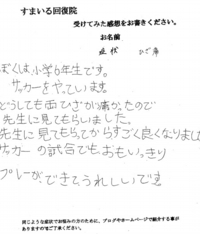 すまいる回復院
受けてみた感想をお書きください。
お名前
症状 ひざ痛
ぼくは小学6年生です。
サッカーをやっています。
どうしても両ひざが痛かったので
先生に見てもらいました。
先生に見てもらってからすごく良くなりました
サッカーの試合でも、おもいっきり
プレーができてうれしいです
同じような症状でお悩みの方のために、ブログやホームページで紹介する事が
ありますので御了承ください。